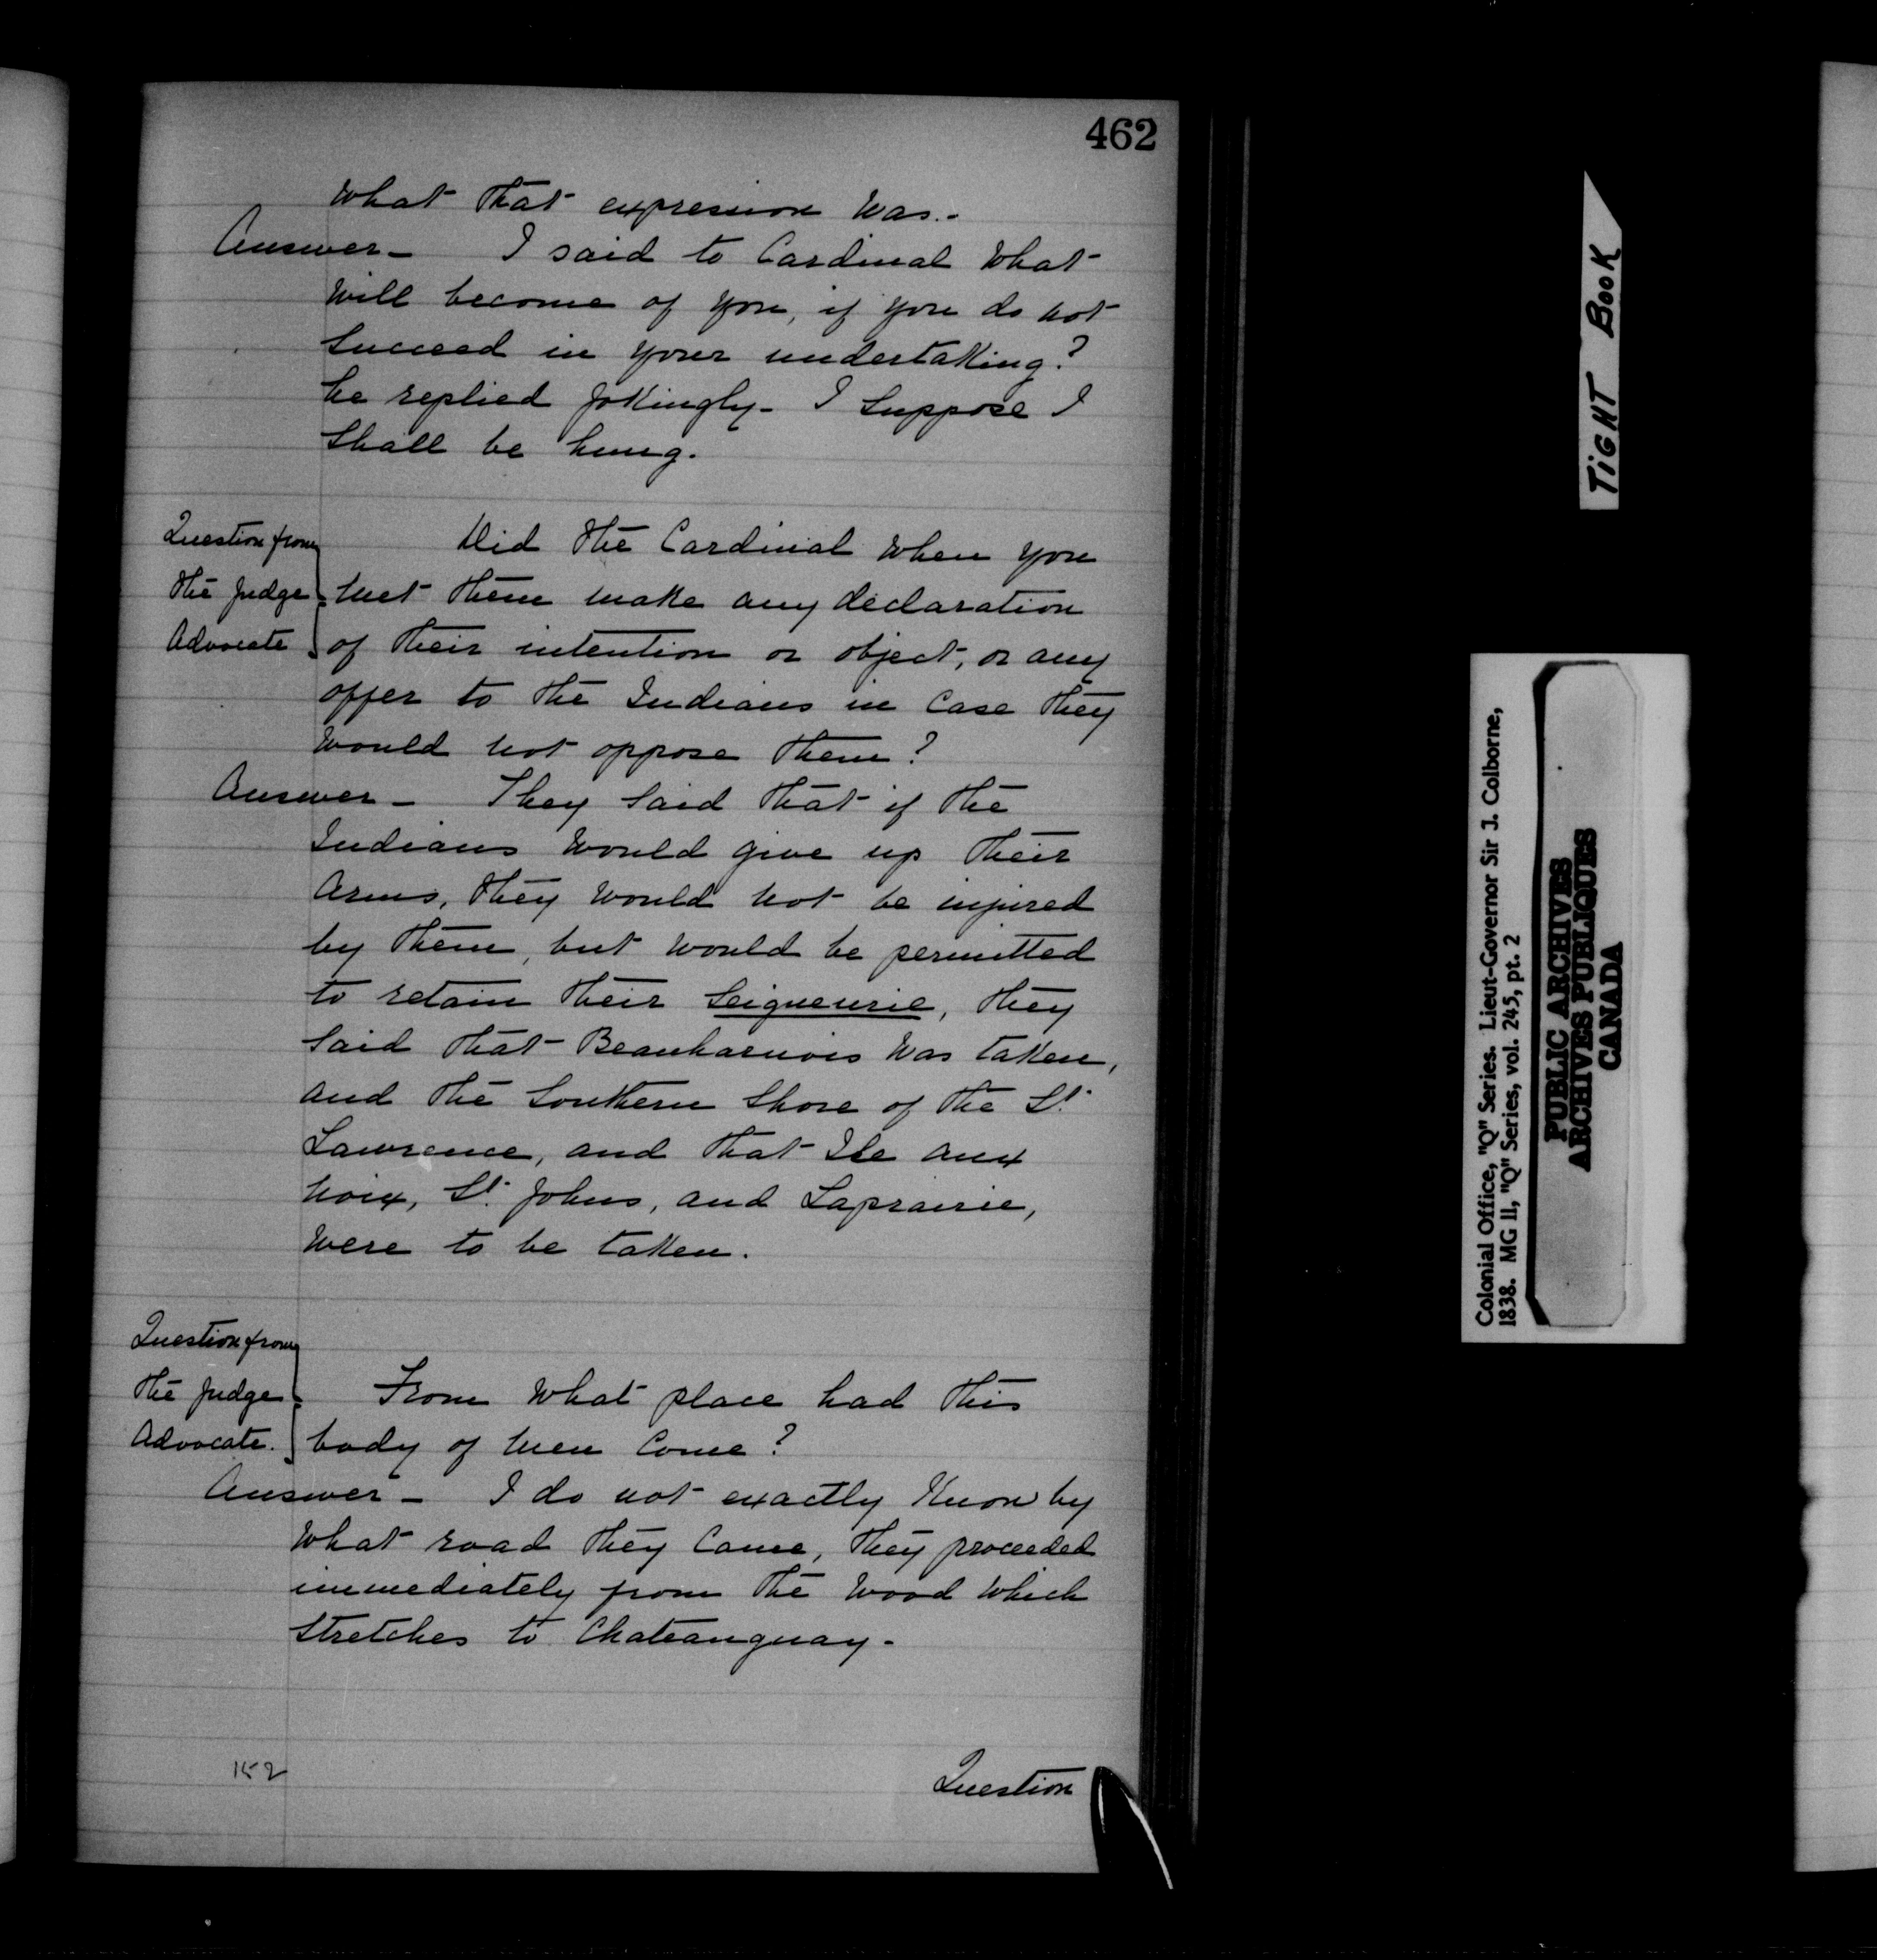 462
What that expression was.-
Answer- I said to Cardinal What
will become of you, if you do not
succeed in your undertaking?
he replied jokingly- I suppose I
shall be hung.
Question from
the Judge
Advocate
Did the Cardinal when you
met them make any declaration
of their intention or object, or any
offer to the Indians in case they
would not oppose them?
Answer- They said that if the
Indians would give up their
arms, they would not be injured
by them, but would be permitted
to retain their Seigneurie, they
said that Beauharnois was taken,
and the Southern Shore of the St.
Lawrence, and that Ile aux
noix, St. Johns, and Laprairie,
were to be taken.
Question from
the Judge
Advocate.
From what place had this
body of men come?
Answer- I do not exactly know by
what road they came, they proceeded
immediately from the wood which
stretches to Chateauguay-
152
Question
TiGHT BOOK
Colonial Office, "Q" Series. Lieut-Governor Sir J. Colborne,
1838. MG II, "Q" Series, vol. 245, pt. 2
PUBLIC ARCHIVES
ARCHIVES PUBLIQUES
CANADA